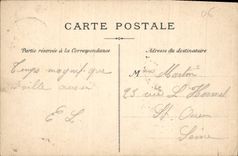 CARTE POSTALE
Partie réservée à la Correspondance
Adresse du destinataire
Temps magnifique
E L
Mme Martin
25 rue L'Hermel
St. Ouen
Seine